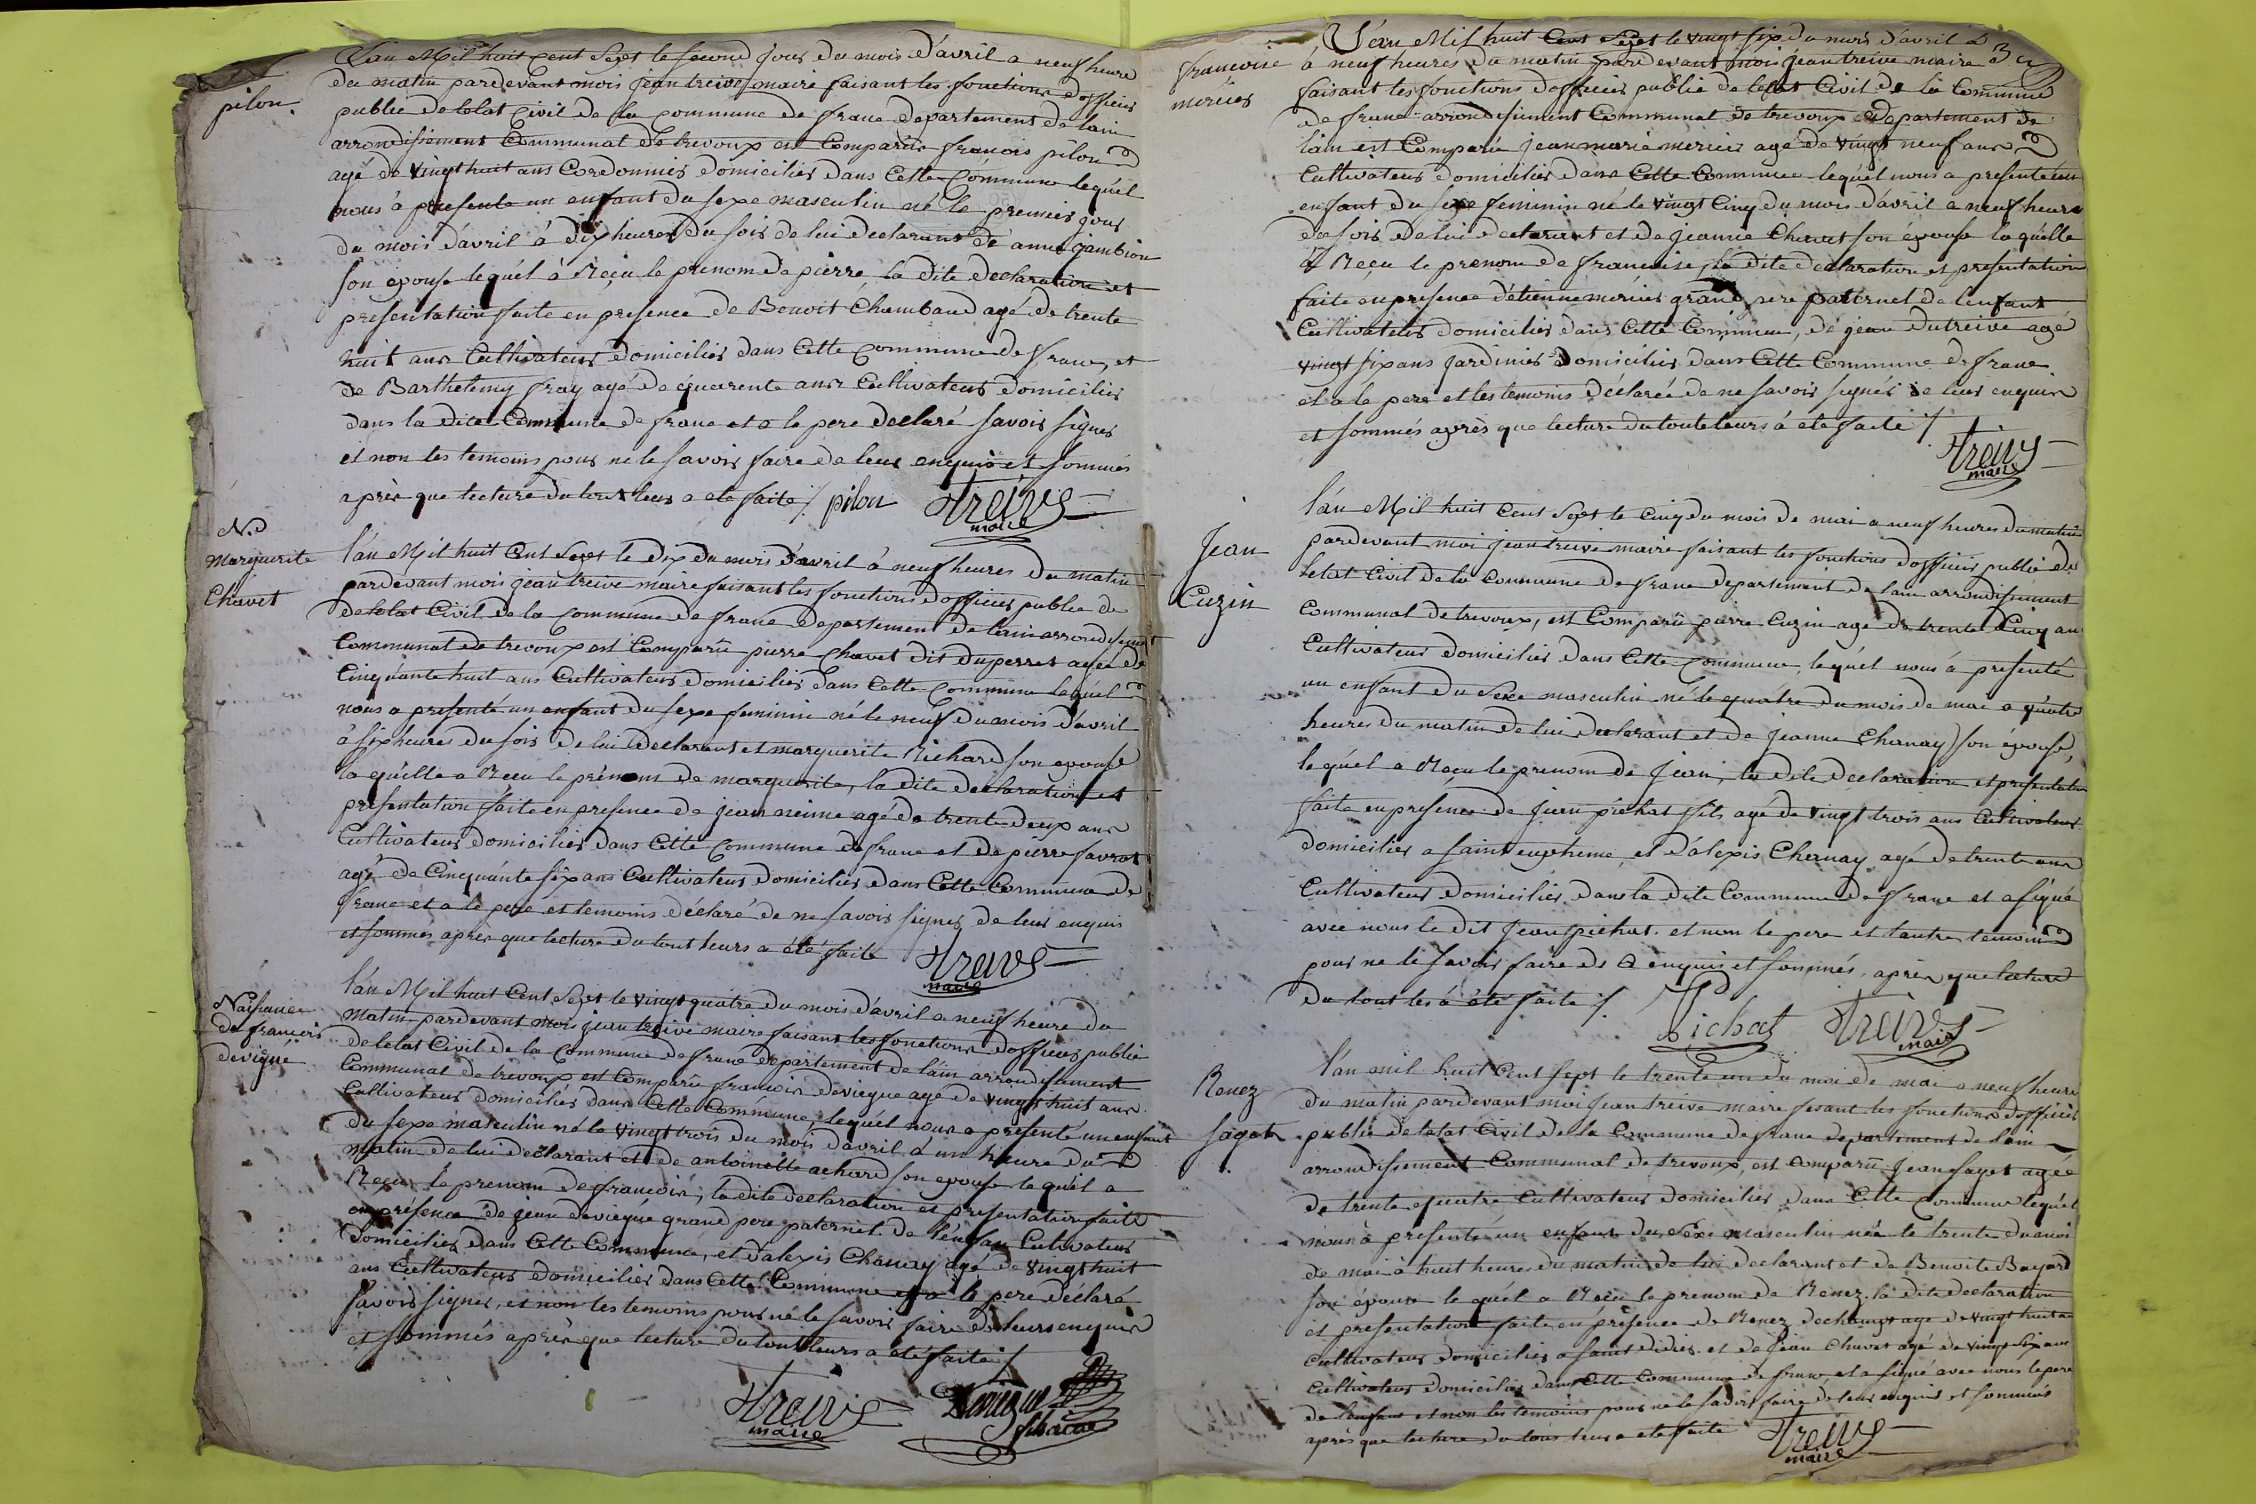 pilon.
L'an Mil huit cent Sept le second jour du mois d'avril a neuf heure
du matin pardevant mois jean treive maire faisant les fonctions d'officier
public de letat Civil de la commune de frane departement de lain
arrondissement Communal de trevoux est Comparûs francois pilon
agé de vingt huit ans Cordonnier domicilier dans Cette Commune lequél
nous à presenté un enfant du sexe masculin né le premier jour
du mois d'avril à dix heures du soir de lui declarant de anne jambion
son épouse lequél à Reçu le prenom de pierre la dite declaration et
presentation faite en presence de Benoit Chambaud agé de trente
huit ans Cultivateur domicilier dans Cette Commune de frane, et
de Barthelemy fray agé de quarente ans Cultivateur domicilier
dans la dite Commune de frane et a le pere declaré savoir signer
et non les temoins pour ne le savoir faire de leur enquis et sommés
après que lecture du tout leur a été faite /. pilon Treive
maire
N.
Marguerite
Chavet
L'an Mil huit Cent Sept le dix du mois d'avril à neuf heures du matin
pardevant mois jean treive maire faisant les fonctions d'officier public de
de letat Civil de la Commune de frane departement de lain arrondissement
Communal de trevoux est Comparû pierre Chavet dit duperret agée de
Cinquante huit ans Cultivateur domicilier dans Cette Commune lequél
nous a presenté un enfant du sexe feminin né le neuf du mois d'avril
à six heures du soir de lui declarant et marguerite Richard son epouse
la quélle a Reçu le prénom de marguerite, la dite declaration et
presentation faite en presence de jean neime agé de trente deux ans
Cultivateur domicilier dans Cette Commune de frane et de pierre favrat
agé de Cinquánte six ans Cultivateur domicilier dans Cette Commune de
frane et a le pere et temoins déclaré de ne savoir signer de leur enquis
et sommés après que lecture du tout leurs a été faite Treive
maire
Naissance
de francois
devigne
L'an Mil huit Cent Sept le vingt quatre du mois d'avril a neuf heure du
Matin pardevant moi jean treive maire faisant les fonctions d'officier public
de letat Civil de la Commune de frane departement de lain arrondissement
Communal de trevoux est Comparû francois devigne agé de vingt huit ans
Cultivateur domicilier dans Cette Commune, lequél nous a presenté un enfant
du sexe masculin né le vingt trois du mois d'avril à un heure du
Matin de lui declarant et de antoinette achard son epouse lequél a
Reçu le prenom de francois, la dite declaration et presentation faite
en présence de jean devigne grand pere paternel de l'enfan Cultivateur
domicilier dans Cette Commune, et d'alexis Charnay agé de vingt huit
ans Cultivateur domicilier dans Cette Commune et a le pere déclaré
savoir signer, et non les temoins pour ne le savoir faire de leurs enquis
et sommés après que lecture du tout leurs a été faite /
Treive
maire
Devigne
francoise
mercier
L'an Mil huit Cent Sept le vingt six du mois d'avril à
à neuf heures du matin pardevant moi jean treive maire
faisant les fonctions d'officier public de letat Civil de la Commune
de frane arrondissement Communal de trevoux departement de
lain est Comparu jean marie mercier agé de vingt neuf ans
Cultivateur domicilier dans Cette Commune lequél nous a presenté un
enfant du sexe feminin né le vingt Cinq du mois d'avril a neuf heure
de soir de lui declarant et de jeanne Chavet son épouse la quélle
à Reçu le prenom de francoise, la dite declaration et presentation
faite en presence d'etienne mercier grand pere paternel de lenfant
Cultivateur domicilier dans Cette Commune, de jean dutreive agé
vingt six ans jardinier domicilier dans Cette Commune de frane
et a le pere et les temoins declarée de ne savoir signer de leur enquis
et sommés après que lecture du tout leurs à été faite /.
Treive
maire
Jean
Cuzin
L'an Mil huit Cent Sept le Cinq du mois de mai a neuf heures du matin
pardevant moi jean treive maire faisant les fonctions d'officier public de
letat Civil de la Commune de frane departement de lain arrondissement
Communal de trevoux, est Comparû pierre Cuzin agé de trente Cinq ans
Cultivateur domicilier dans Cette Commune, lequél nous à presenté
un enfant du Sexe masculin né le quatre du mois de mai a quatre
heures du matin de lui declarant et de jeanne Charnay son épouse,
lequél a Reçu le prenom de jean, la dite declaration et presentation
faite en presence de jean pichat fils agé de vingt trois ans Cultivateur
domicilier a saint eupheme, et d'alexis Charnay agé de trente ans
Cultivateur domicilier dans la dite Commune de frane et a signé
avec nous le dit jean pichat. et non le pere et lautre temoin
pour ne le savoir faire de enquis et sommés, après que lecture
du tout les à été faite /.
Pichat Treive
maire
Renez
fayet
L'an mil huit Cent Sept le trente un du moi de mai a neuf heure
du matin pardevant moi jean treive maire fesant les fonctions d'officier
public de letat Civil de la Commune de frane departement de lain
arrondissement Communal de trevoux, est comparû jean fayet agée
de trente quatre Cultivateur domicilier dans Cette Commune lequél
nous à presenté un enfant du Sexe masculin née le trente du moi
de mai à huit heures du matin de lui declarant et de Benoite Bayard
son épouse le quél a Reçu le prenom de Renez la dite declaration
et presentation faite en présence de Renez dechamps agé de vingt huit ans
Cultivateur domicilier a saint didier et de jean Chavet agé de vingt six ans
Cultivateur domicilier dans Cette Commune de frane, et a signé avec nous le pere
de lenfant et non les temoins pour ne le savoir faire de leur enquis et sommés
après que lecture du tous leur a été faite Treive
maire